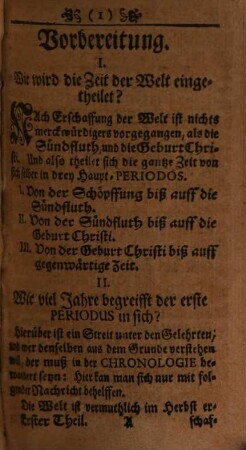 (1)
Vorbereitung.
I.
Wie wird die Zeit der Welt einge-
theilet?
Nach Erschaffung der Welt ist nichts
merckwürdigers vorgegangen, als die
Sündfluth, und die Geburt Chri-
sti. Und also theilet sich die gantze Zeit von
sich selber in drey Haupt-PERIODOS.
I. Von der Schöpffung biß auff die
Sündfluth.
II. Von der Sündfluth biß auff die
Geburt Christi.
III. Von der Geburt Christi biß auff
gegenwärtige Zeit.
II.
Wie viel Jahre begreifft der erste
PERIODUS in sich?
Hierüber ist ein Streit unter den Gelehrten,
und wer denselben aus dem Grunde verstehen
wil, der muß in der CHRONOLOGIE be-
wandert seyn: Hier kan man sich nur mit fol-
gender Nachricht behelffen.
Die Welt ist vermuthlich im Herbst er-
Erster Theil. A schaf-